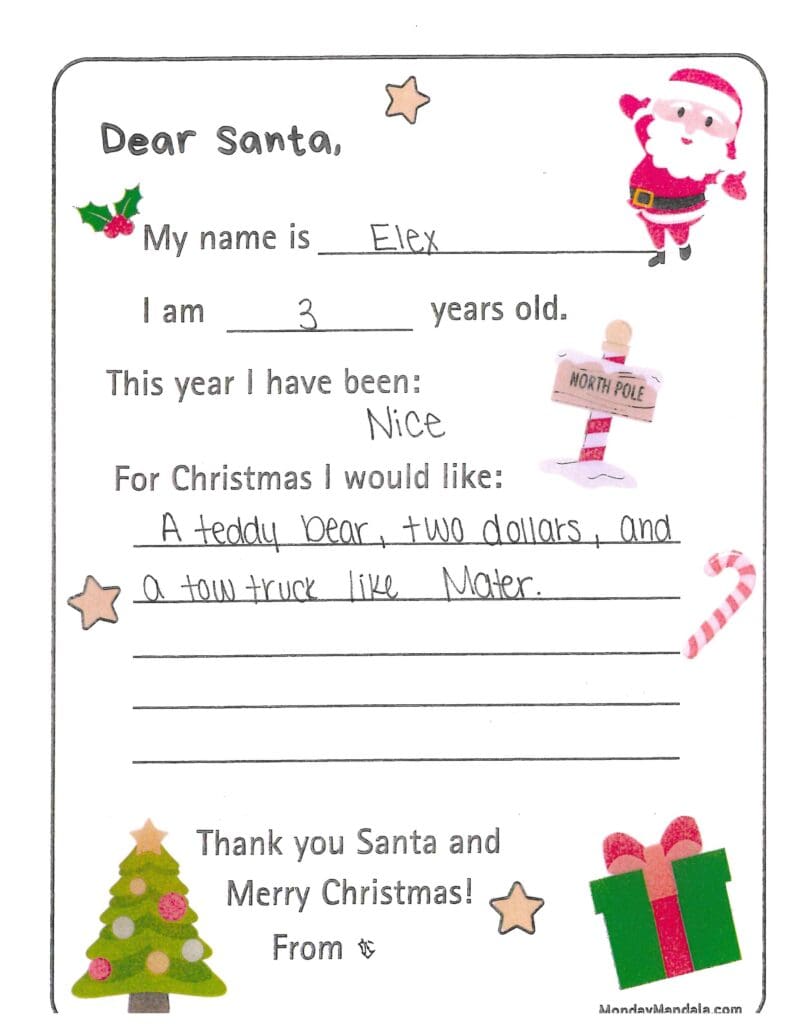 Dear Santa,
My name is Elex
I am 3 years old.
NORTH POLE
This year I have been:
Nice
For Christmas I would like:
A teddy bear, two dollars, and
a tow truck like Mater.
Thank you Santa and
Merry Christmas!
From
MondayMandala.com